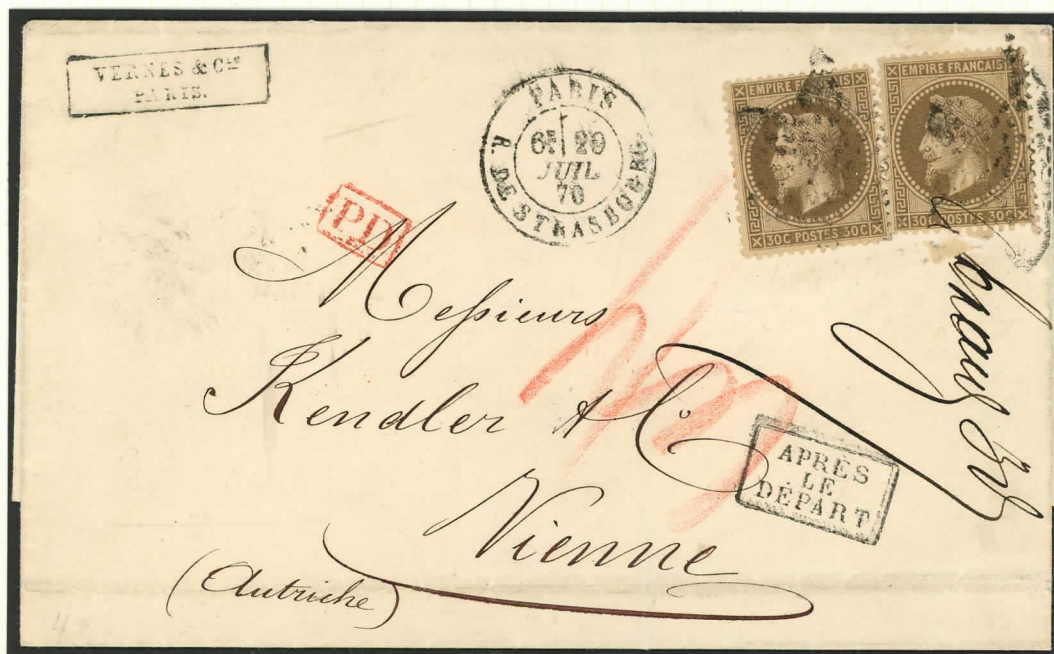 VERNES & Cie
PARIS.
PARIS
6E 29
JUIL
70
R. DE STRASBOURG
EMPIRE FRANÇAIS
30C POSTES 30C
EMPIRE FRANÇAIS
30C POSTES 30C
PD
Messieurs
Kendler & Co
Vienne
(Autriche)
APRÈS
LE
DÉPART